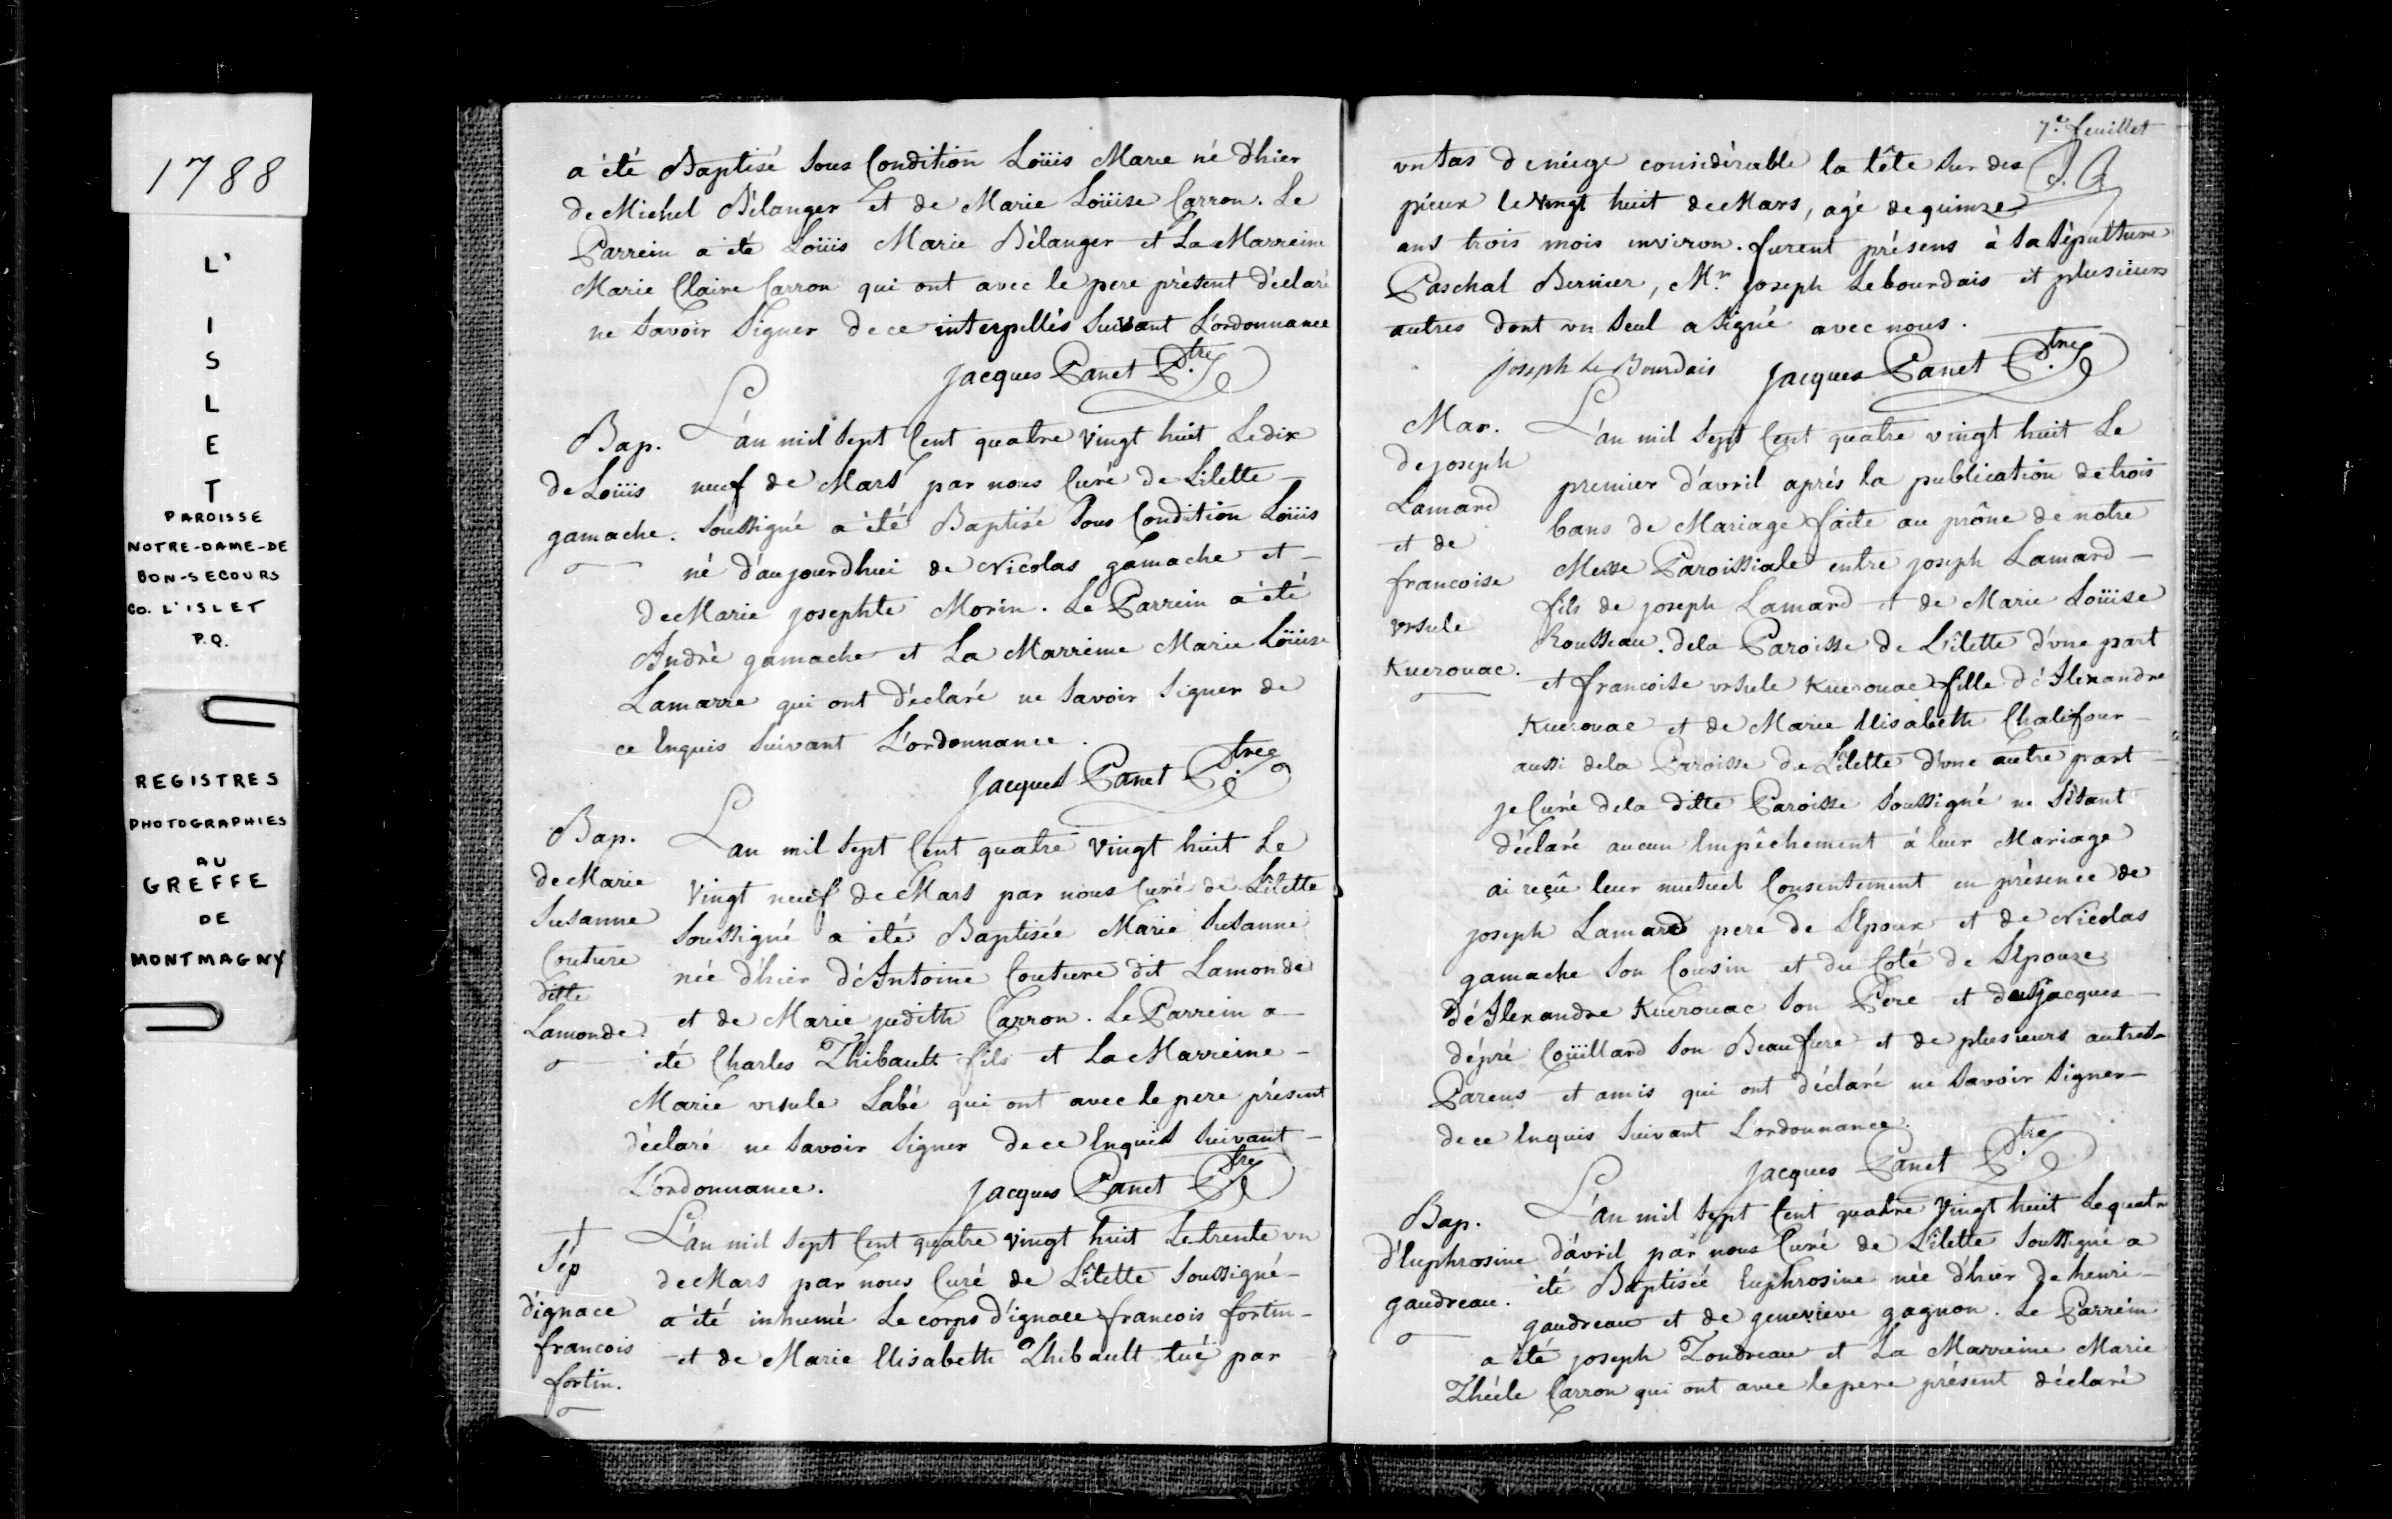 1788
L'
I
S
L
E
T
PAROISSE
NOTRE-DAME-DE
BON-SECOURS
CO. L'ISLET
P.Q.
REGISTRES
PHOTOGRAPHIES
AU
GREFFE
DE
MONTMAGNY
a été Baptisé Sous Condition Loüis Marie né d'hier
de Michel Bélanger et de Marie Loüise Carron. Le
Parrein a été Loüis Marie Bélanger et La Marreine
Marie Claire Carron qui ont avec le pere présent déclaré
ne Savoir Signer de ce interpellés Suivant L'ordonnance
Jacques Panet Ptre
Bap.
de Loüis
gamache.
L'an mil Sept Cent quatre vingt huit Le dix
neuf de Mars par nous Curé de Lilette
Soussigné a été Baptisé Sous Condition Loüis
né d'aujourdhui de Nicolas gamache et
de Marie josephte Morin. Le Parrein a été
André gamache et La Marreine Marie Loüise
Lamarre qui ont déclaré ne Savoir Signer de
ce Enquis Suivant L'ordonnance.
Jacques Panet Ptre
Bap.
de Marie
Susanne
Couture
ditte
Lamonde
L'an mil Sept Cent quatre vingt huit Le
vingt neuf de Mars par nous Curé de Lîlette
Soussigné a été Baptisée Marie Susanne
née d'hier d'Antoine Couture dit Lamonde
et de Marie judith Carron. Le Parrein a
été Charles Thibault fils et La Marreine
Marie ursule Labé qui ont avec le pere présent
déclaré ne Savoir Signer de ce Enquis Suivant
L'ordonnance.
Jacques Panet Ptre
†
Sép
d'ignace
francois
fortin.
L'an mil Sept Cent quatre vingt huit Le trente un
de Mars par nous Curé de Lîlette Soussigné
a été inhumé Le corps d'ignace francois fortin
et de Marie Elisabeth Thibault tué par
7e feuillet
un tas de neige considérable la tête Sur des
pieux le vingt huit de Mars, agé de quinze
ans trois mois environ. furent présens à Sa Sépulture
Paschal Bernier, Mr. joseph Lebourdais et plusieurs
autres dont un Seul a Signé avec nous.
joseph Le Bourdais Jacques Panet Ptre
Mar.
de joseph
Lamard
et de
francoise
ursule
Kuerouac.
L'an mil Sept Cent quatre vingt huit Le
premier d'avril aprés la publication de trois
bans de Mariage faite au prône de notre
Messe Paroissiale entre joseph Lamard
fils de joseph Lamard et de Marie Loüise
Rousseau. de la Paroisse de L'ilette d'une part
et francoise ursule Kuerouac fille d'Alexandre
Kuerouac et de Marie Elisabeth Chalifour
aussi de la Parroisse de Lîlette d'une autre part
je Curé de la ditte Paroisse Soussigné ne S'étant
déclaré aucun Empêchement à leur Mariage
ai reçû leur mutuel Consentement en présence de
joseph Lamard pere de L'Epoux et de Nicolas
gamache Son Cousin et du Coté de L'Epouze
d'Alexandre Kuerouac Son Pere et de jacques
dépré Coüillard Son Beaufrere et de plusieurs autres
Parens et amis qui ont déclaré ne Savoir Signer
de ce Enquis Suivant L'ordonnance.
Jacques Panet Ptre
Bap.
d'Euphrosine
gaudreau.
L'an mil Sept Cent quatre vingt huit Le quatre
d'avril par nous Curé de Lîlette Soussigné a
été Baptisée Euphrosine née d'hier de henri
gaudreau et de genevieve gagnon. Le Parrein
a été joseph Tondreau et La Marreine Marie
Thécle Carron qui ont avec le pere présent déclaré